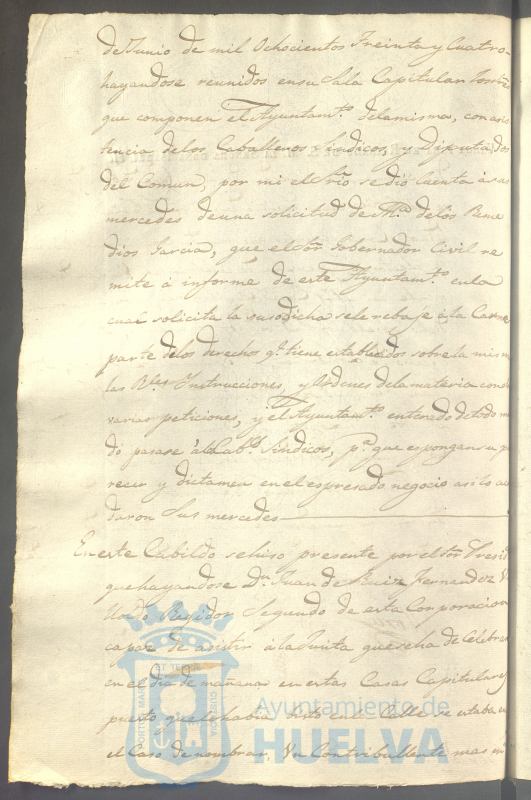 de Junio de mil Ochocientos Treinta y Cuatro
hayandose reunidos en su Sala Capitular los
que componen el Ayuntamto. dela misma, con asis
tencia delos Caballeros Sindicos, y Diputados
del Comun, por mi el Srio se dió Cuenta á sus
mercedes de una solicitud de Ma. de los Reme
dios Garcia, que el Sor. Gobernador Civil re
mite á informe de este Ayuntamto. en la
cual solicita la susodicha se le rebaje á la Carne
parte delos derechos qe. tiene establecidos sobre la misma
las Rles. Instrucciones, y Ordenes dela materia con
varias peticiones, y el Ayuntamto. enterado de todo
dó pasase á los Cabs. Sindicos, pa. que espongan su pa
recer y dictamen en el espresado negocio asi lo acor
daron Sus mercedes
En este Cabildo se hiso presente por el Sor. Presid
que hayandose Dn. Juan de Ruiz Fernandez
Regidor Segundo de esta Corporacion
capaz de asistir á la Quinta que se ha de Celebrar
en el dia de mañana en estas Casas Capitulares
puesto que le habia dado en la Calle se estaba en
el Caso de nombrar, Un Contribullente mas
PORTUS MARIS
ET TERRE
CUSTODIA
Ayuntamiento de
HUELVA